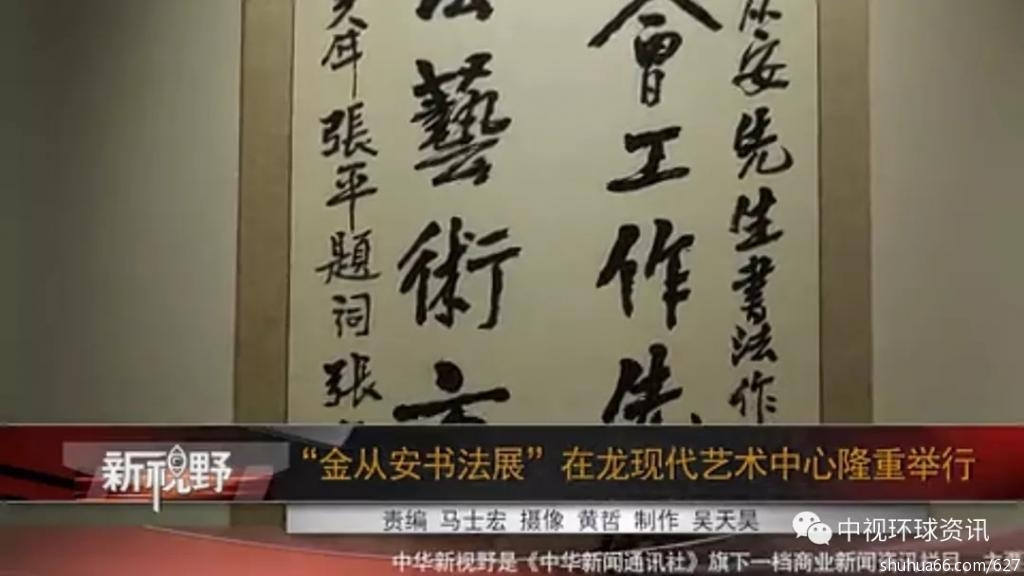 從安先生書法作
會工作先
法藝術
張平題詞張
新视野
“金从安书法展”在龙现代艺术中心隆重举行
责编 马士宏 摄像 黄哲 制作 吴天昊
中视环球资讯
中华新视野是《中华新闻通讯社》旗下一档商业新闻资讯栏目
shuhua66.com/627